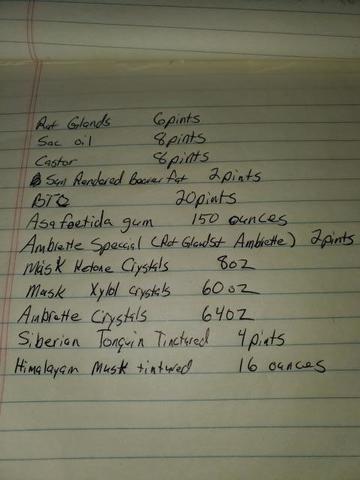 Rat Glands 6pints
Sac oil 8pints
Castor 8pints
Sun Rendered Beaver fat 2pints
BTC 20pints
Asafoetida gum 150 ounces
Ambrette Special (Rat Glands+ Ambrette) 2pints
Musk Ketone Crystals 8oz
Musk Xylol crystals 60oz
Ambrette Crystals 64oz
Siberian Tonquin Tinctured 4pints
Himalayan Musk tintured 16 ounces